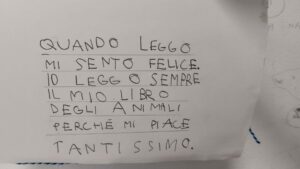 QUANDO LEGGO
MI SENTO FELICE.
IO LEGGO SEMPRE
IL MIO LIBRO
DEGLI ANIMALI
PERCHÉ MI PIACE
TANTISSIMO.